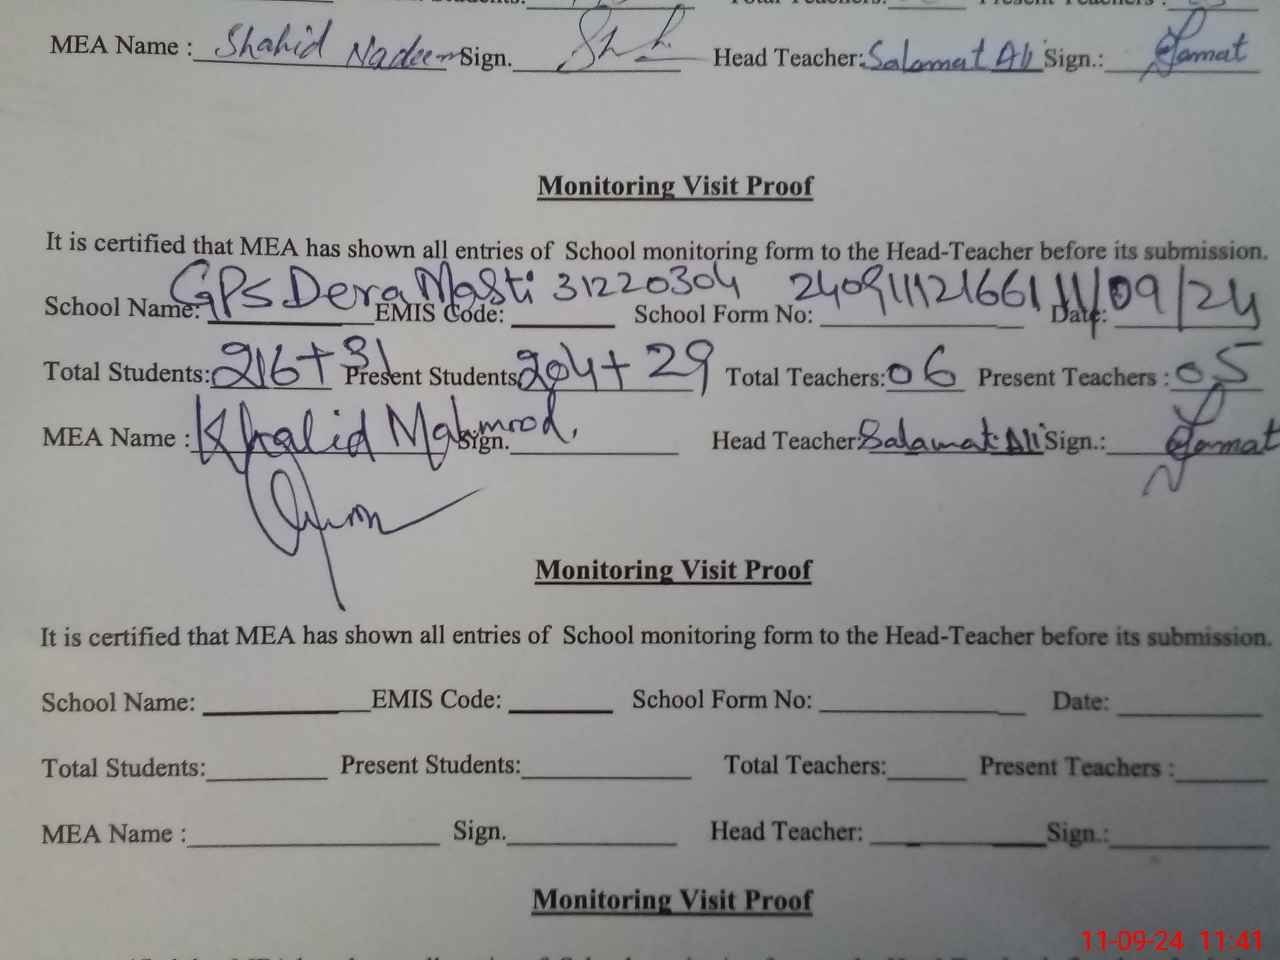 MEA Name : Shahid Nadeem Sign. Head Teacher: Salamat Ali Sign.: Salamat
Monitoring Visit Proof
It is certified that MEA has shown all entries of School monitoring form to the Head-Teacher before its submission.
School Name: GPS Dera Masti EMIS Code: 31220304 School Form No: 240911121661 Date: 11/09/24
Total Students: 216+31 Present Students: 204+29 Total Teachers: 06 Present Teachers : 05
MEA Name : Khalid Mahmood, Sign. Head Teacher: Salamat Ali Sign.: Salamat
Monitoring Visit Proof
It is certified that MEA has shown all entries of School monitoring form to the Head-Teacher before its submission.
School Name: EMIS Code: School Form No: Date:
Total Students: Present Students: Total Teachers: Present Teachers :
MEA Name : Sign. Head Teacher: Sign.:
Monitoring Visit Proof
11-09-24 11:41